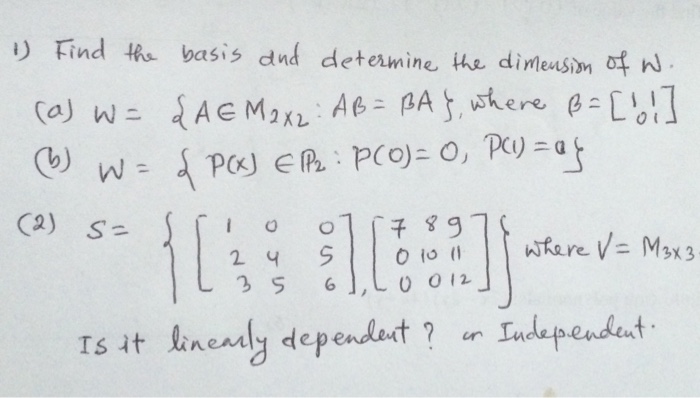 1) Find the basis and determine the dimension of W.
(a) W = {A ∈ M2x2 : AB = BA}, where B = [1 1
0 1]
(b) W = { P(x) ∈ P2 : P(0) = 0, P(1) = a}
(2) S = { [1 0 0
2 4 5
3 5 6], [7 8 9
0 10 11
0 0 12] } where V = M3x3.
Is it linearly dependent? or Independent.